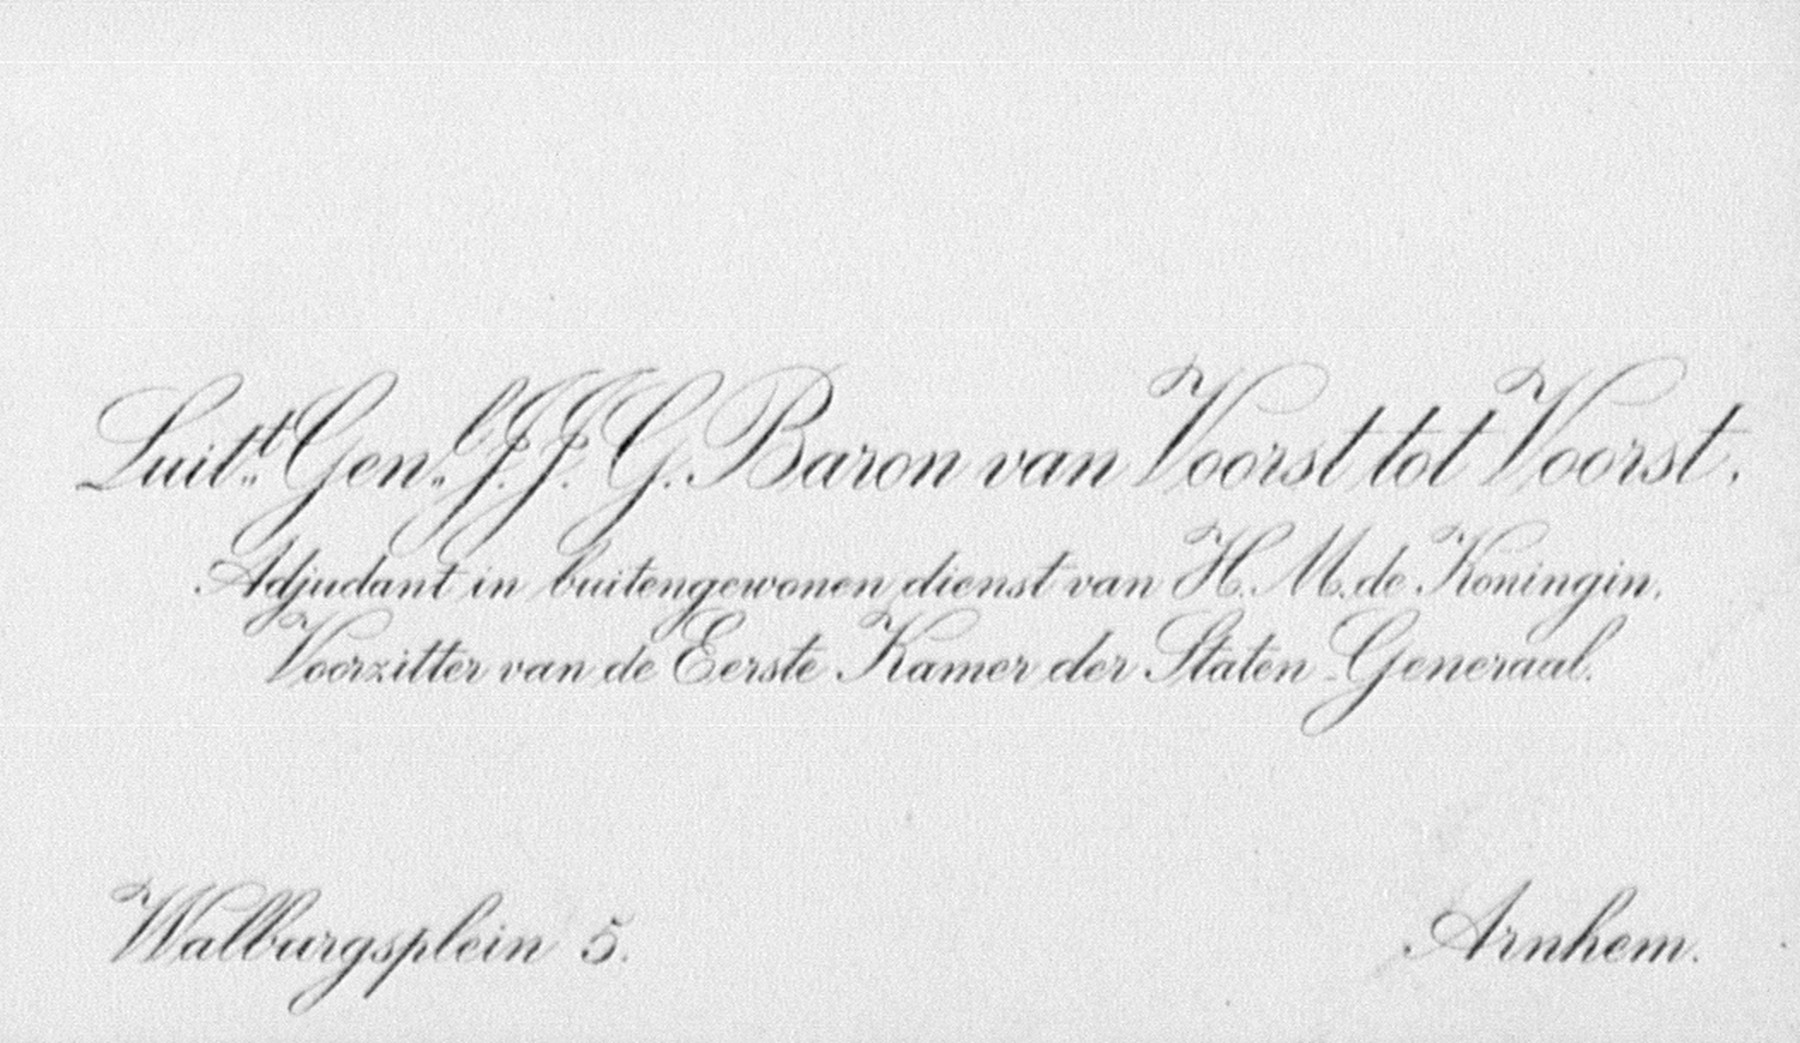 Luit.t Gen.l J. J. G. Baron van Voorst tot Voorst,
Adjudant in buitengewonen dienst van H. M. de Koningin,
Voorzitter van de Eerste Kamer der Staten-Generaal.
Walburgsplein 5.
Arnhem.